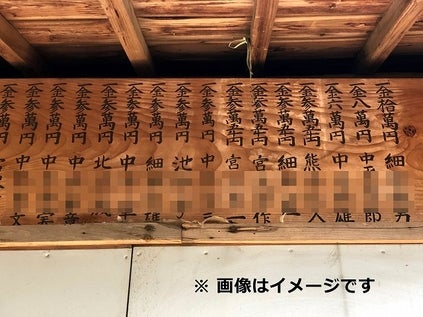 一金拾萬円 細 男
一金八萬円 中 郎
一金六萬円 中 雄
一金参萬五千円 熊 人
一金参萬五千円 細 一
一金参萬五千円 宮 作
一金参萬五千円 宮 一
一金参萬円 中 三
一金参萬円 池
一金参萬円 細 雄
一金参萬円 中
一金参萬円 北
一金参萬円 中
一金参萬円 中 実
一金参萬円 文
※ 画像はイメージです